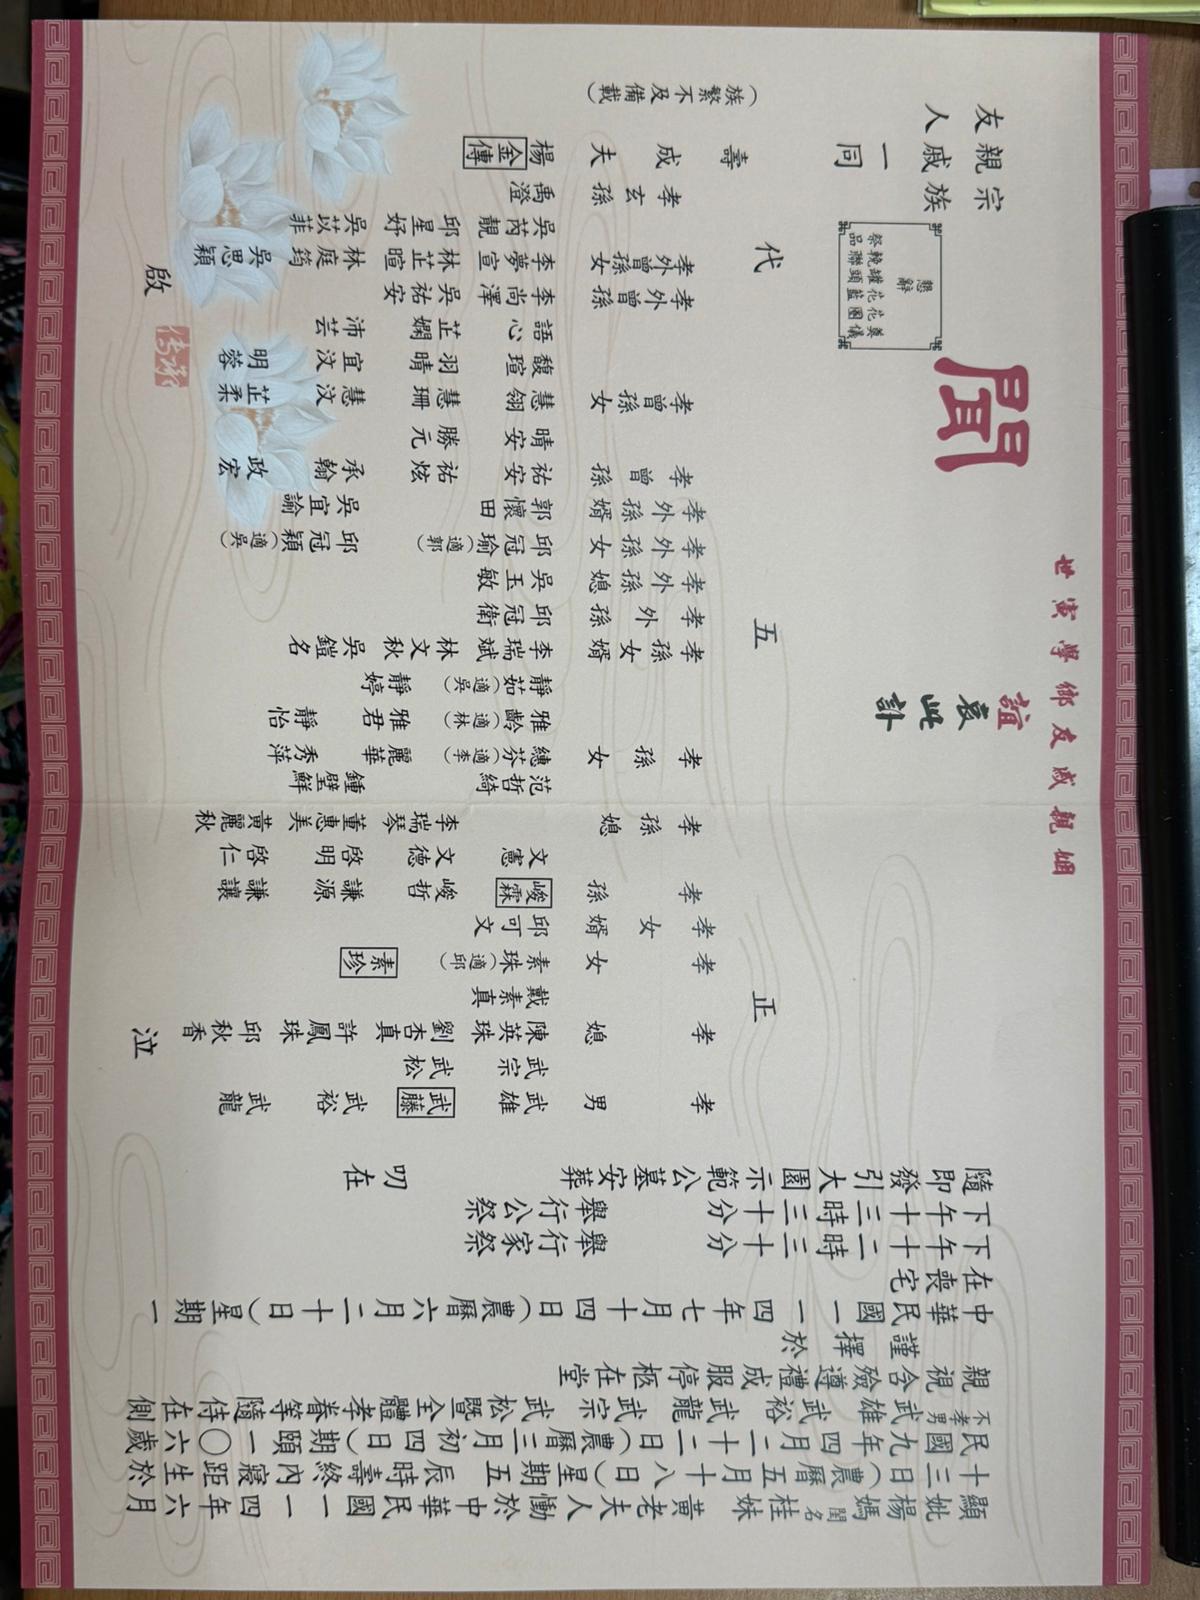 顯妣楊媽閨名桂妹黃老夫人慟於中華民國一一四年六月
十三日（農曆五月十八日）星期五 辰時壽終內寢距生於
民國九年四月二十二日（農曆三月初四日）期頤一〇六歲
不孝男武雄武裕武龍武宗武松暨全體孝眷等隨侍在側
親視含殮遵禮成服停柩在堂
謹擇於
中華民國一一四年七月十四日（農曆六月二十日）星期一
在喪宅
下午十二時三十分 舉行家祭
下午十三時三十分 舉行公祭
隨即發引大園示範公墓安葬 叨在
姻親戚友鄉學寅世
誼哀此訃
聞
懇辭
奠儀
花圈
花籃
罐頭
輓聯
祭品
孝男 武雄 武藤 武裕 武龍
武宗 武松
孝媳 陳英珠 劉杏真 許鳳珠 邱秋香
戴素真
孝女 素珠（適邱） 素珍
孝女婿 邱可文
孝孫 峻霖 峻哲 謙源 謙讓
文憲 文德 啓明 啓仁
孝孫媳 李瑞琴 董惠美 黃麗秋
范哲綺 鍾壁鮮
孝孫女 總芬（適李） 麗華 秀萍
雅齡（適林） 雅君 靜怡
靜茹（適吳） 靜婷
孝孫女婿 李瑞斌 林文秋 吳鎧名
孝外孫 邱冠衛
孝外孫媳 吳玉敏
孝外孫女 邱冠瑜（適郭） 邱冠穎（適吳）
孝外孫婿 郭懷田 吳宜諭
孝曾孫 祐安 祐炫 承翰 政宏
晴安 勝元
孝曾孫女 慧翎 慧珊 慧汶 芷柔
馥瑄 羽晴 宜汶 明蓉
語心 芷嫻 沛芸
孝外曾孫 李尚澤 吳祐安
孝外曾孫女 李夢宣 林芷暄 林庭筠 吳思穎
吳芮靚 邱星妤 吳苡菲
孝玄孫 禹澄
夫 楊金傳
正五代成壽
（族繁不及備載）
泣啟
宗親友
族戚人
一同